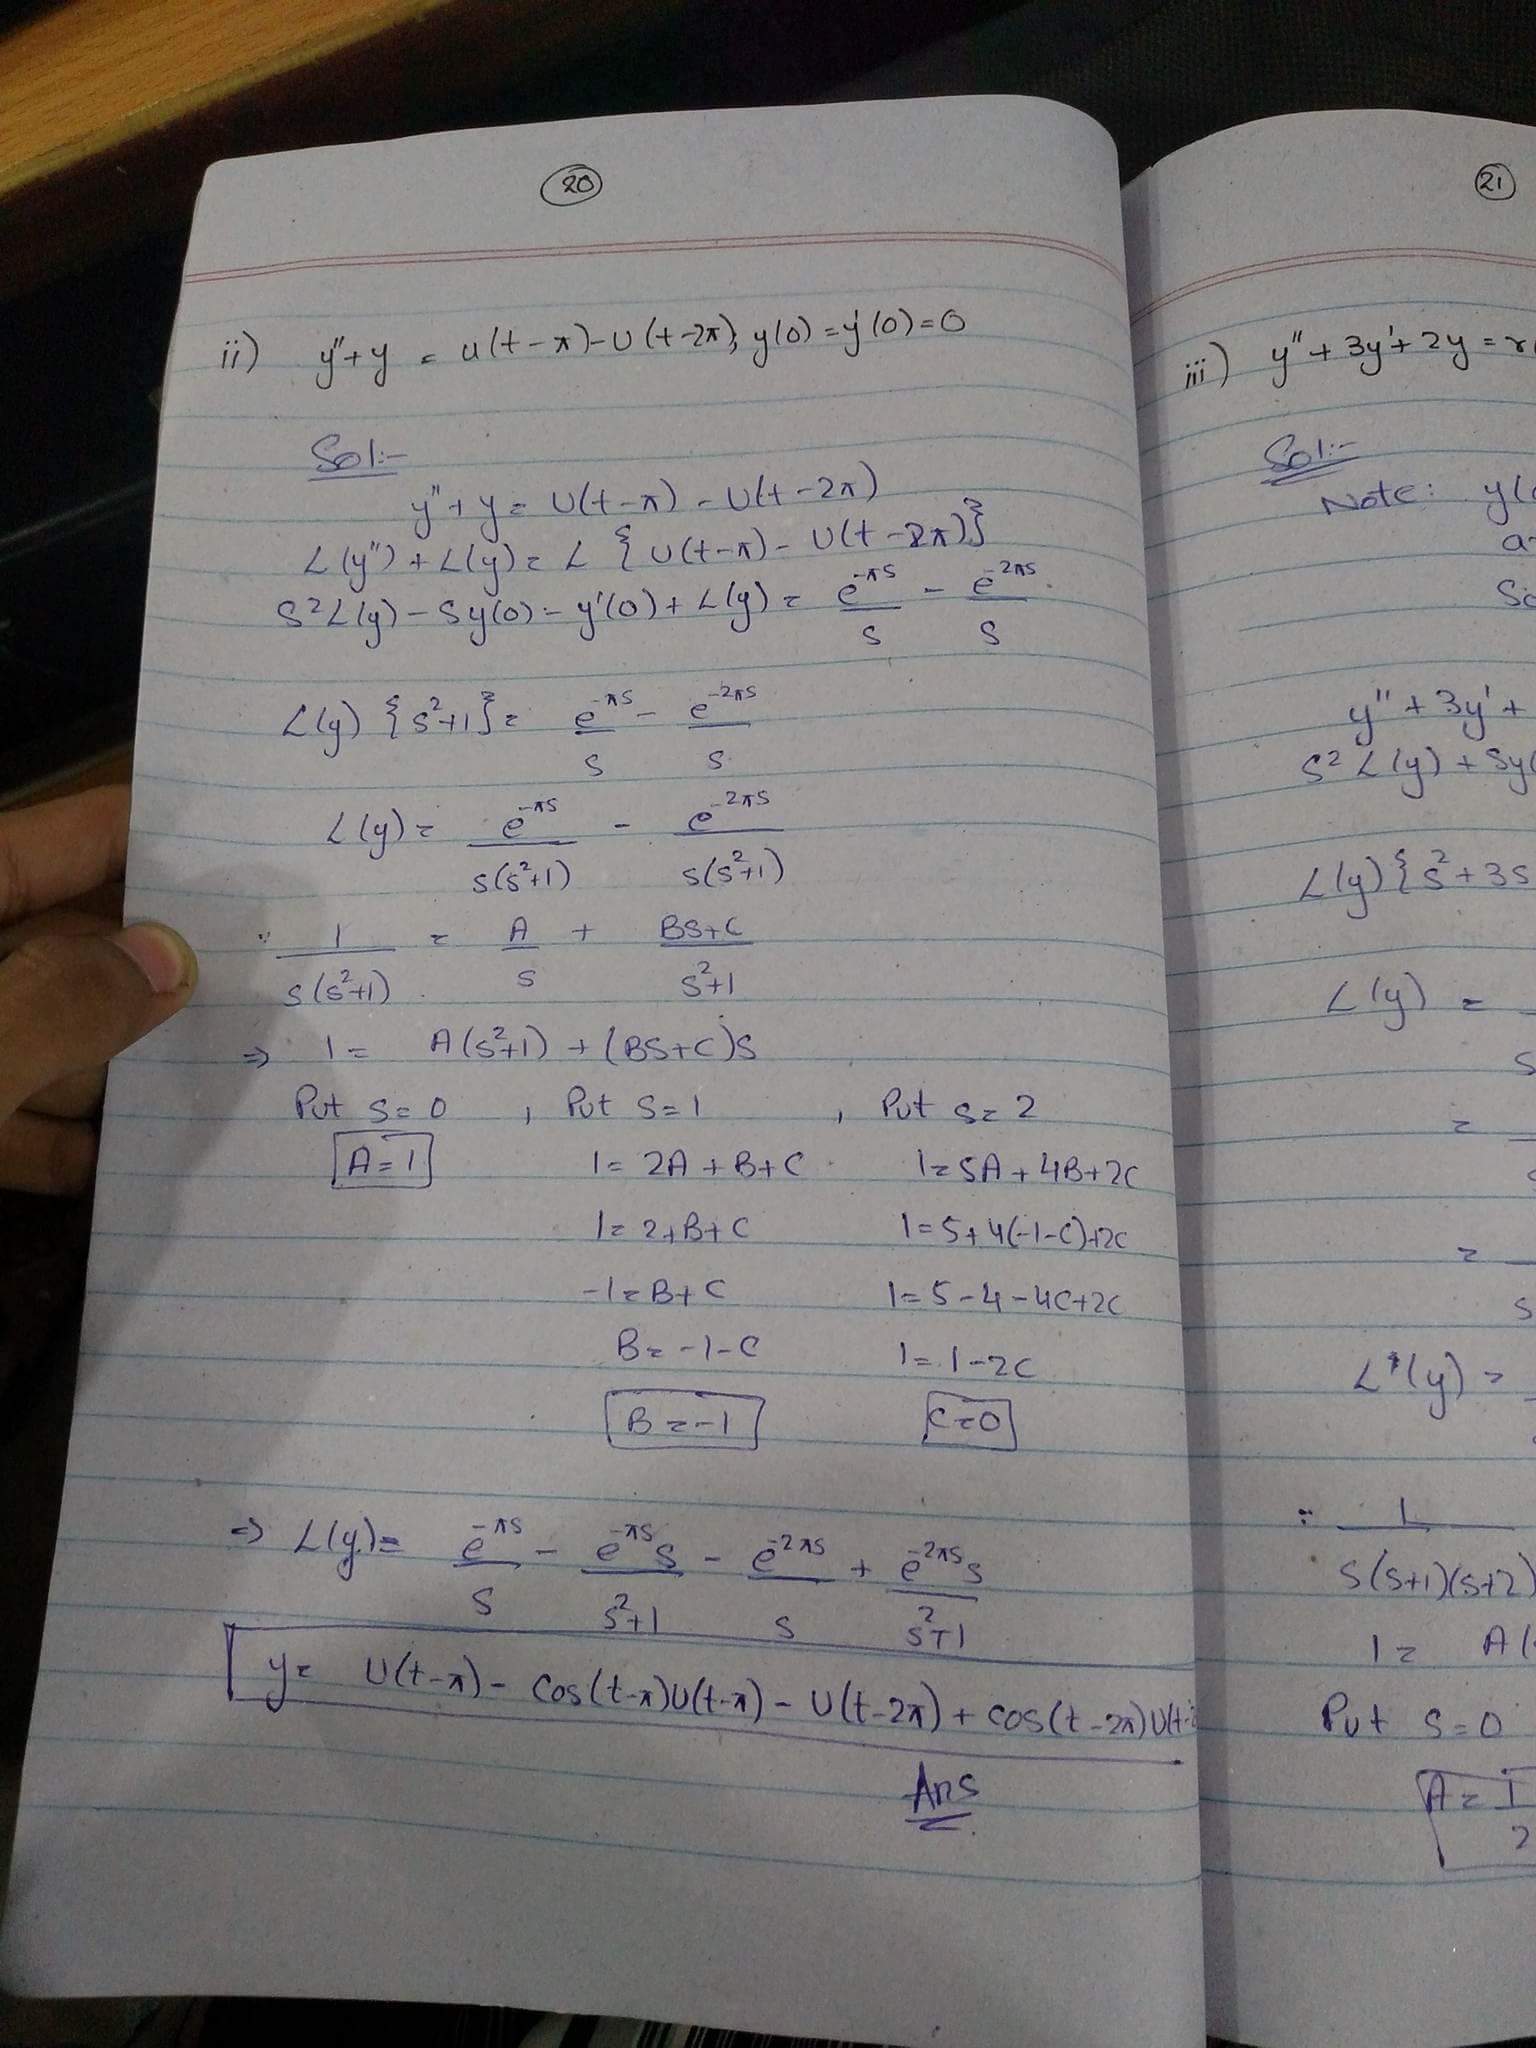 20
ii) y"+y = u(t-π)-U(t-2π), y(0)=y'(0)=0
Sol:-
y"+y = U(t-π) - U(t-2π)
L(y")+L(y)= L {U(t-π) - U(t-2π)}
S²L(y) - Sy(0) - y'(0) + L(y) = e^-πs/s - e^-2πs/s
L(y) {s²+1} = e^-πs/s - e^-2πs/s
L(y) = e^-πs/s(s²+1) - e^-2πs/s(s²+1)
∵ 1/s(s²+1) = A/s + BS+C/s²+1
⇒ 1 = A(s²+1) + (BS+C)S
Put S=0 , Put S=1 , Put s=2
A=1 1= 2A+B+C 1=5A+4B+2C
1=2+B+C 1=5+4(-1-C)+2C
-1=B+C 1=5-4-4C+2C
B=-1-C 1=1-2C
B=-1 C=0
⇒ L(y)= e^-πs/s - e^-πs s/s²+1 - e^-2πs/s + e^-2πs s/s²+1
y= U(t-π) - cos(t-π)U(t-π) - U(t-2π) + cos(t-2π)U(t-2
Ans
21
iii) y"+3y'+2y=
Sol:-
Note: y(
So
y"+3y'+
S²L(y)+Sy(
L(y){s²+3s
L(y) =
s
=
=
s
L(y) =
∵ 1/s(s+1)(s+2)
1= A(
Put S=0
A=1/2